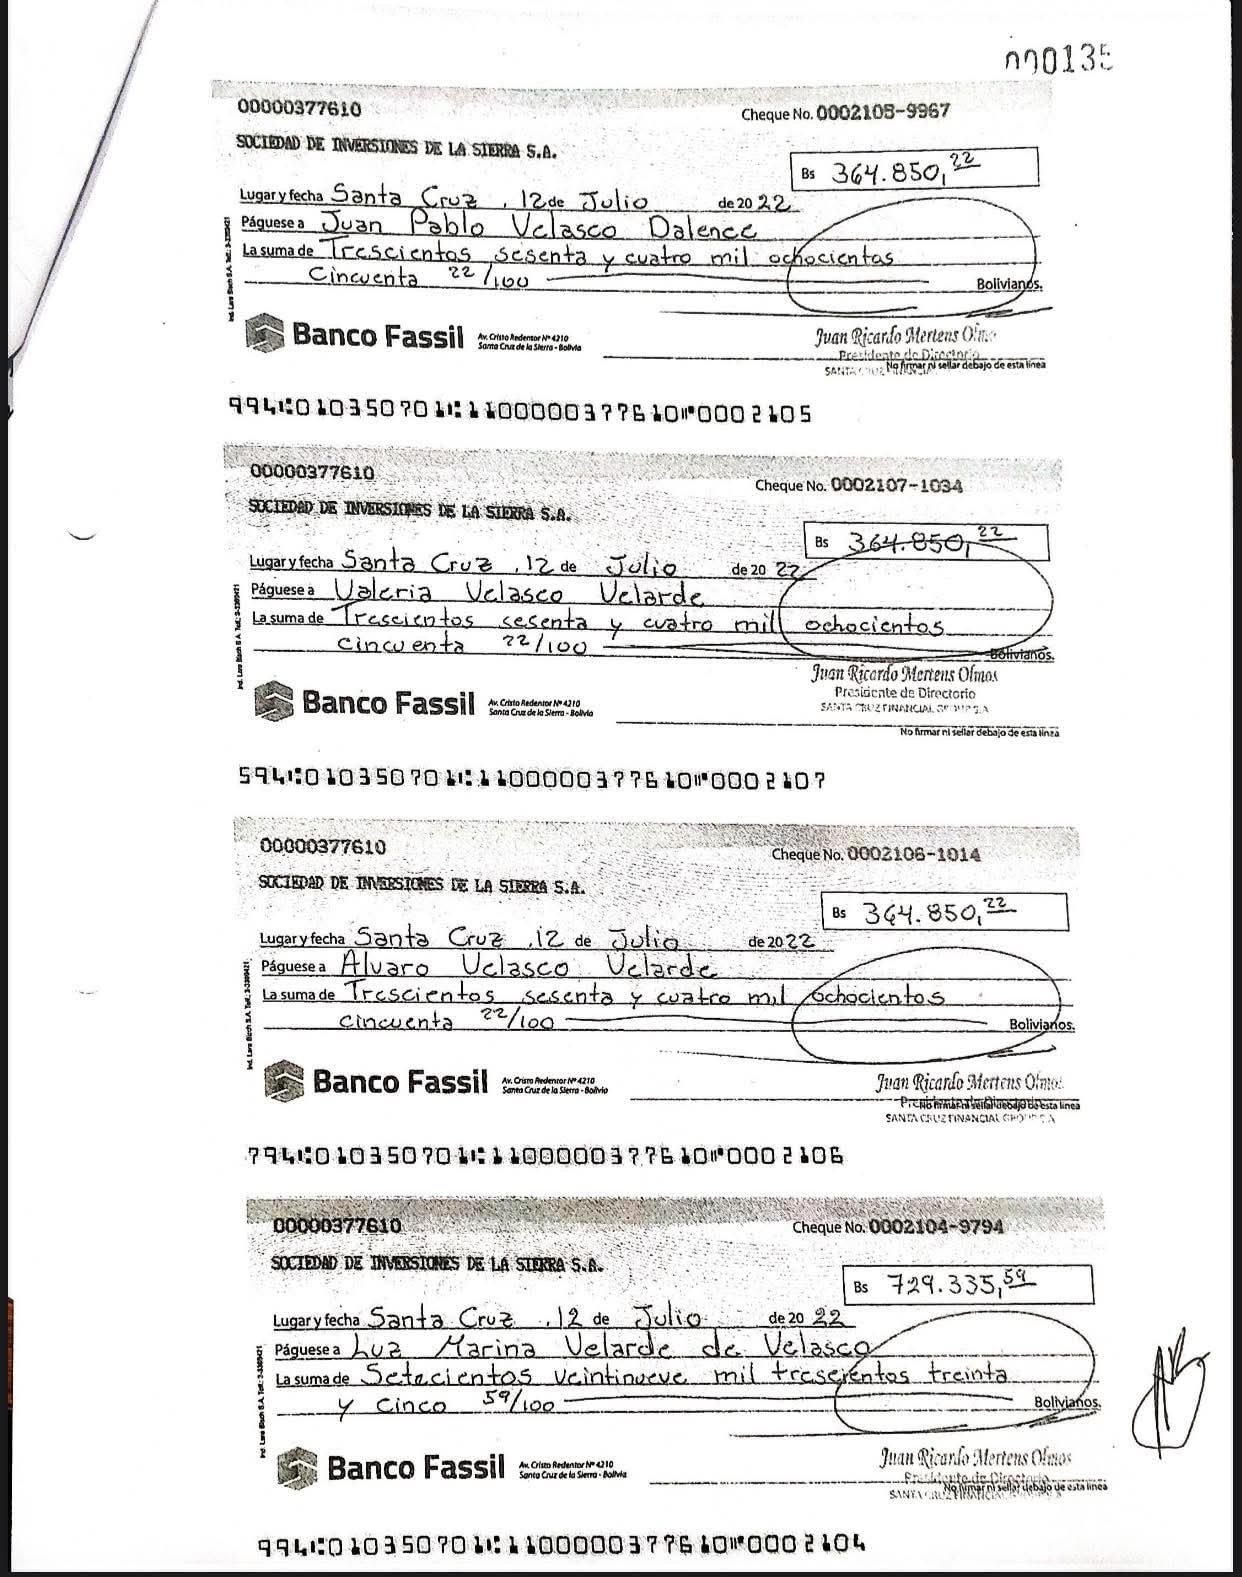 000135
00000377610
Cheque No. 0002105-9967
SOCIEDAD DE INVERSIONES DE LA SIERRA S.A.
Bs 364.850,22
Lugar y fecha Santa Cruz , 12 de Julio de 2022
Páguese a Juan Pablo Velasco Dalence
La suma de Trescientos sesenta y cuatro mil ochocientos
Cincuenta 22/100 Bolivianos.
Banco Fassil Av. Cristo Redentor Nº 4210
Santa Cruz de la Sierra - Bolivia
Juan Ricardo Mertens
Presidente de Directorio
No firmar ni sellar debajo de esta línea
994⑆010350701⑆1100000377610⑈0002105
00000377610
Cheque No. 0002107-1034
SOCIEDAD DE INVERSIONES DE LA SIERRA S.A.
Bs 364.850,22
Lugar y fecha Santa Cruz , 12 de Julio de 2022
Páguese a Valeria Velasco Velarde
La suma de Trescientos sesenta y cuatro mil ochocientos
cincuenta 22/100 Bolivianos.
Juan Ricardo Mertens Olmos
Presidente de Directorio
SANTA CRUZ FINANCIAL GROUP S.A
Banco Fassil Av. Cristo Redentor Nº 4210
Santa Cruz de la Sierra - Bolivia
No firmar ni sellar debajo de esta línea
594⑆010350701⑆1100000377610⑈0002107
00000377610
Cheque No. 0002106-1014
SOCIEDAD DE INVERSIONES DE LA SIERRA S.A.
Bs 364.850,22
Lugar y fecha Santa Cruz , 12 de Julio de 2022
Páguese a Alvaro Velasco Velarde
La suma de Trescientos sesenta y cuatro mil ochocientos
cincuenta 22/100 Bolivianos.
Banco Fassil Av. Cristo Redentor Nº 4210
Santa Cruz de la Sierra - Bolivia
Juan Ricardo Mertens Olmos
No firmar ni sellar debajo de esta línea
SANTA CRUZ FINANCIAL GROUP S.A
794⑆010350701⑆1100000377610⑈0002106
00000377610
Cheque No. 0002104-9794
SOCIEDAD DE INVERSIONES DE LA SIERRA S.A.
Bs 729.335,59
Lugar y fecha Santa Cruz , 12 de Julio de 2022
Páguese a Luz Marina Velarde de Velasco
La suma de Setecientos veintinueve mil trescientos treinta
y cinco 59/100 Bolivianos.
Banco Fassil Av. Cristo Redentor Nº 4210
Santa Cruz de la Sierra - Bolivia
Juan Ricardo Mertens Olmos
Presidente de Directorio
No firmar ni sellar debajo de esta línea
994⑆010350701⑆1100000377610⑈0002104